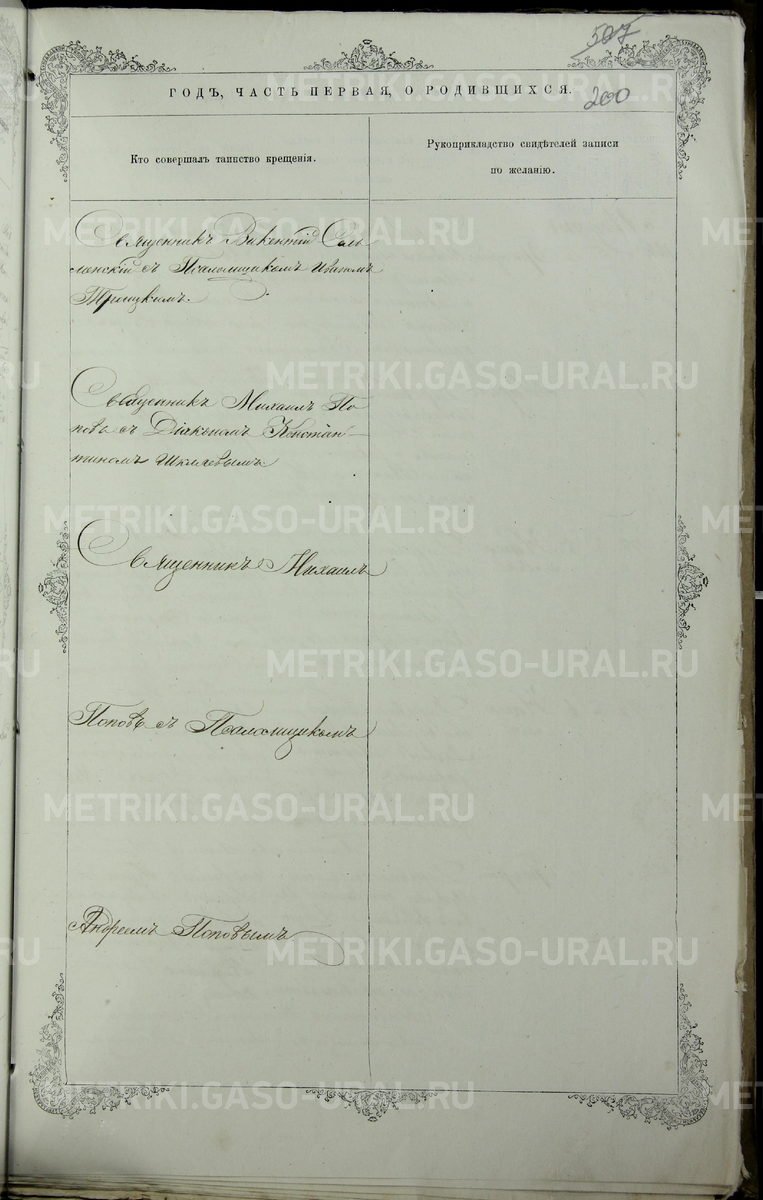 507
200
ГОДЪ, ЧАСТЬ ПЕРВАЯ, О РОДИВШИХСЯ.
Кто совершалъ таинство крещенія.
Рукоприкладство свидѣтелей записи
по желанію.
Священникъ Викентій
съ Псаломщикомъ
Троицкимъ.
Священникъ Михаилъ По
повъ съ Діакономъ Констан-
тиномъ Шкляевымъ
Священникъ Михаилъ
Поповъ съ Псаломщикомъ
Андреемъ Поповымъ
METRIKI.GASO-URAL.RU